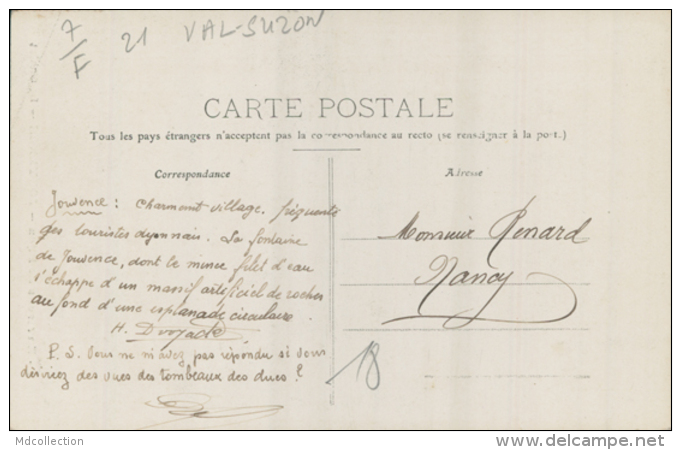 7/F 21 VAL-SUZON
CARTE POSTALE
Tous les pays étrangers n'acceptent pas la correspondance au recto (se renseigner à la poste.)
Correspondance
Adresse
Jouvence : Charmant village, fréquenté
des touristes dijonnais. La fontaine
de Jouvence, dont le mince filet d'eau
s'échappe d'un massif artificiel de rocher
au fond d'une esplanade circulaire.
H.
P. S. Vous ne m'avez pas répondu si vous
désiriez des vues des tombeaux des ducs ?
Monsieur Renard
Nancy
18
Mdcollection
www.delcampe.net